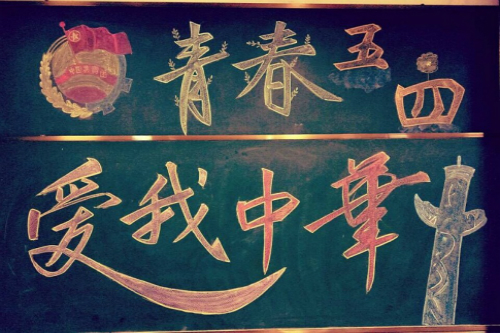 青春五四
爱我中華